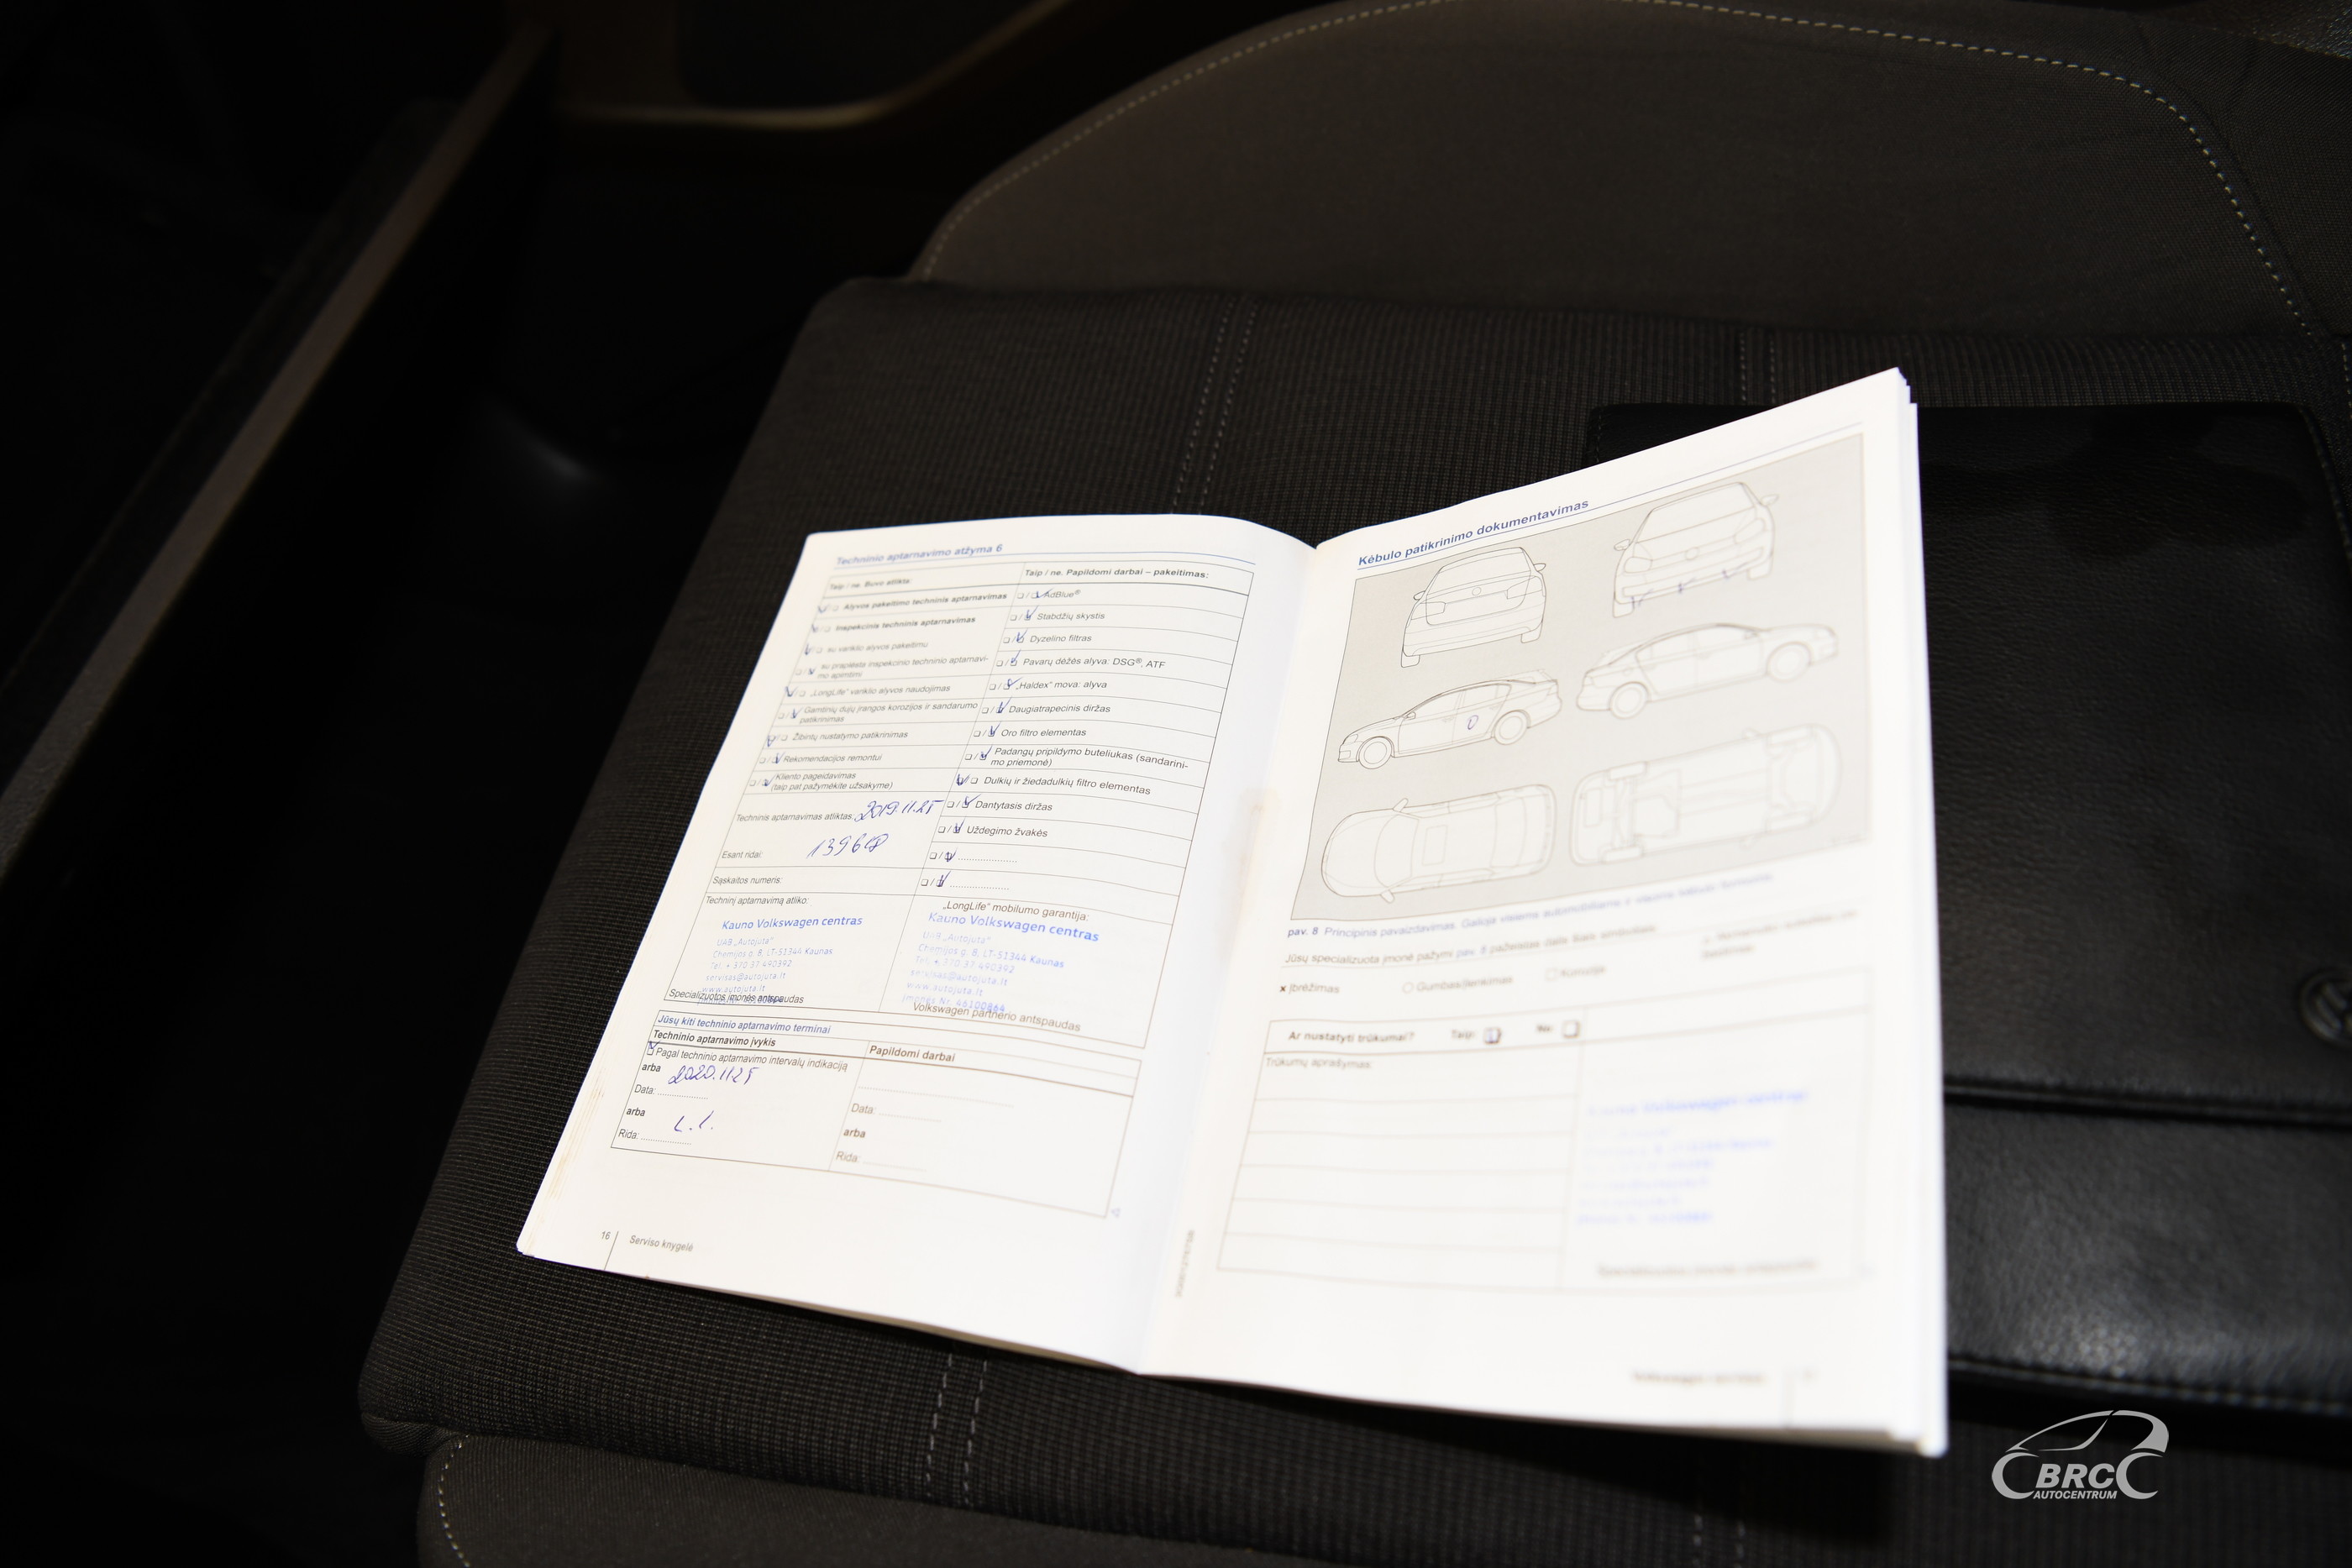 Techninio aptarnavimo atžyma 6
Taip / ne. Buvo atlikta:
Alyvos pakeitimo techninis aptarnavimas
Inspekcinis techninis aptarnavimas
su variklio alyvos pakeitimu
su praplėsta inspekcinio techninio aptarnavi-
mo apimtimi
„LongLife“ variklio alyvos naudojimas
Gamtinių dujų įrangos korozijos ir sandarumo
patikrinimas
Žibintų nustatymo patikrinimas
Rekomendacijos remontui
Kliento pageidavimas
(taip pat pažymėkite užsakyme)
Techninis aptarnavimas atliktas: 2019.11.25
Esant ridai:
Sąskaitos numeris:
Techninį aptarnavimą atliko:
Kauno Volkswagen centras
UAB „Autojuta“
Chemijos g. 8, LT-51344 Kaunas
Tel. + 370 37 490392
servisas@autojuta.lt
www.autojuta.lt
Specializuotos įmonės antspaudas
Taip / ne. Papildomi darbai – pakeitimas:
AdBlue®
Stabdžių skystis
Dyzelino filtras
Pavarų dėžės alyva: DSG®, ATF
„Haldex“ mova: alyva
Daugiatrapecinis diržas
Oro filtro elementas
Padangų pripildymo buteliukas (sandarini-
mo priemonė)
Dulkių ir žiedadulkių filtro elementas
Dantytasis diržas
Uždegimo žvakės
„LongLife“ mobilumo garantija:
Kauno Volkswagen centras
UAB „Autojuta“
Chemijos g. 8, LT-51344 Kaunas
Tel. + 370 37 490392
servisas@autojuta.lt
www.autojuta.lt
Įmonės Nr. 46100864
Volkswagen partnerio antspaudas
Jūsų kiti techninio aptarnavimo terminai
Techninio aptarnavimo įvykis
Pagal techninio aptarnavimo intervalų indikaciją
arba
Data: 2020.11.25
arba
Rida:
Papildomi darbai
Data:
arba
Rida:
16
Serviso knygelė
Kėbulo patikrinimo dokumentavimas
pav. 8 Principinis pavaizdavimas. Galioja visiems automobiliams ir visoms kėbulo formoms.
Jūsų specializuota įmonė pažymi pav. 8 pažeistas dalis šiais simboliais:
x Įbrėžimas
Gumbas/įlenkimas
Korozija
Ar nustatyti trūkumai?
Taip:
Ne:
Trūkumų aprašymas:
Volkswagen centras
BRC
AUTOCENTRUM